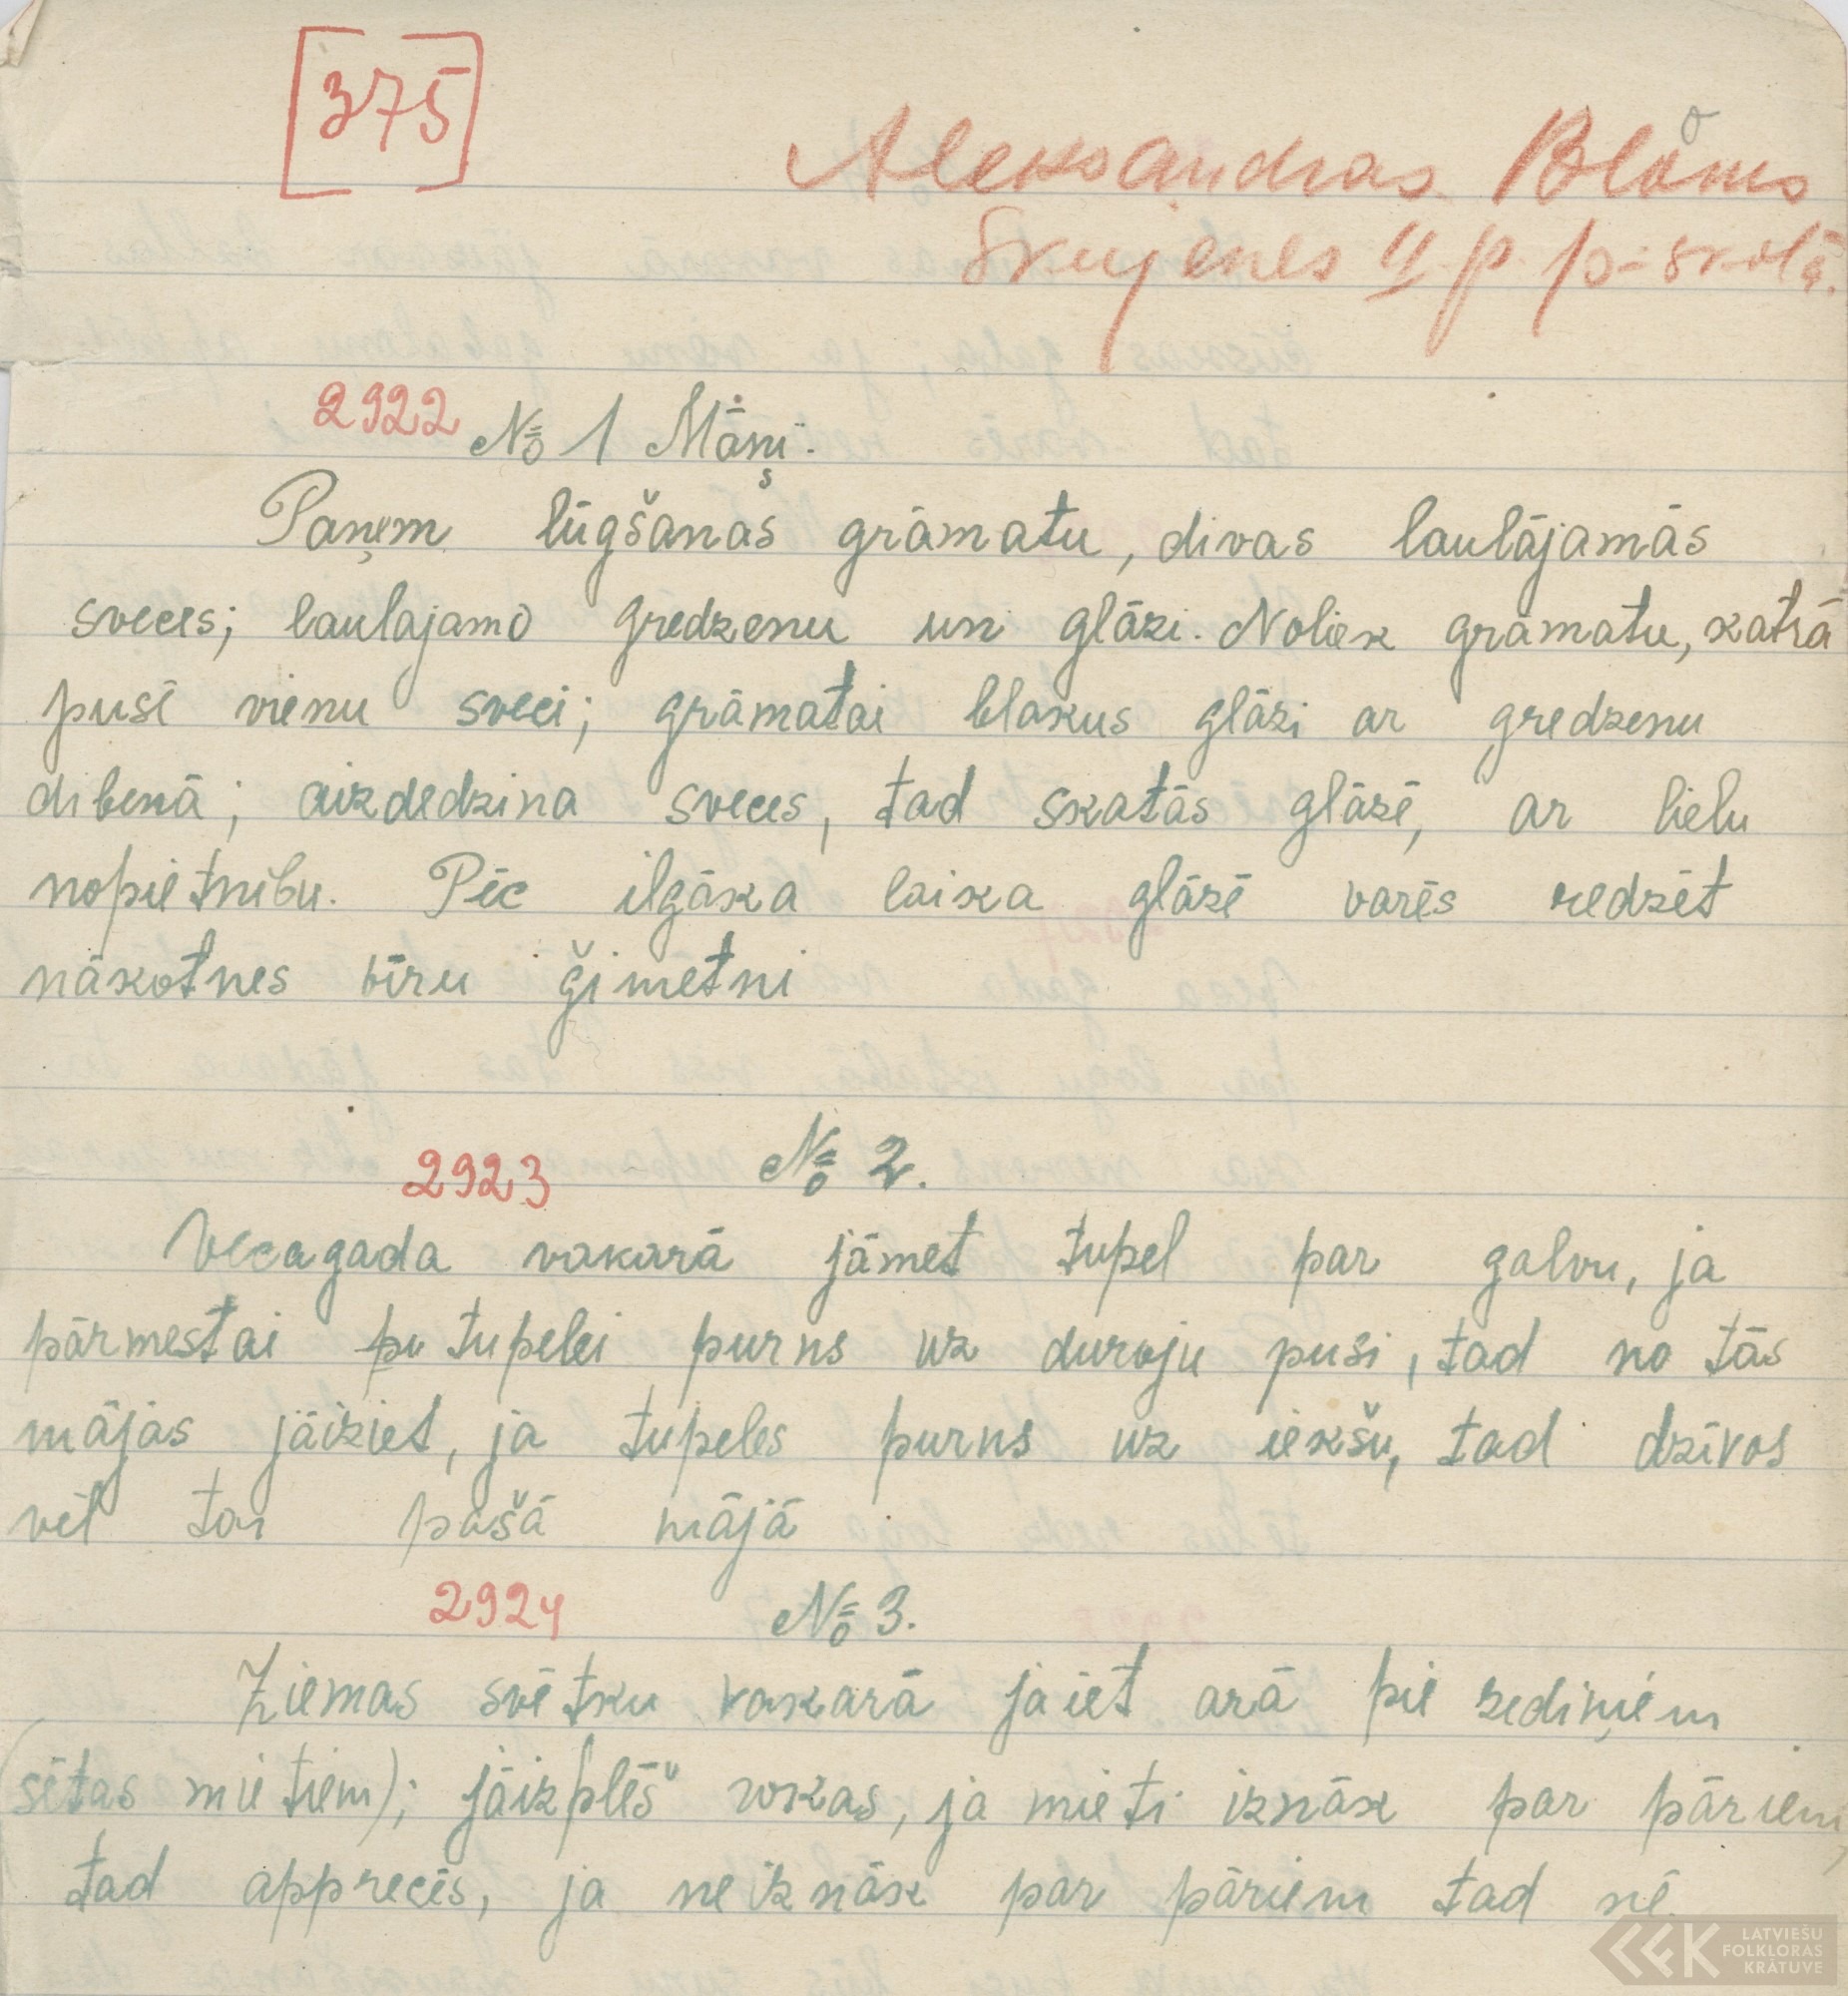 [375]
Aleksandras Bloms
Skujenes II p. p-skolā.
2922 № 1 Māņi.
Paņem lūgšanas grāmatu, divas laulājamās
sveces; laulajamo gredzenu un glāzi. Noliek grāmatu, katrā
pusē vienu sveci; grāmatai blakus glāzi ar gredzenu
dibenā; aizdedzina sveces, tad skatās glāzē, ar lielu
nopietnību. Pēc ilgāka laika glāzē varēs redzēt
nākotnes vīru ģimetni
2923 № 2.
Vecagada vakarā jāmet tupel par galvu, ja
pārmestai pu tupelei purns uz duruju pusi, tad no tās
mājas jāiziet, ja tupeles purns uz iekšu, tad dzīvos
vēl tai pašā mājā
2924 № 3.
Ziemas svētku vakarā jaiet arā pie rediņiem
(sētas mietiem); jāizplēš rokas, ja mieti iznāk par pāriem,
tad apprecēs, ja neiznāk par pāriem tad nē.
LATVIEŠU
FOLKLORAS
KRĀTUVE